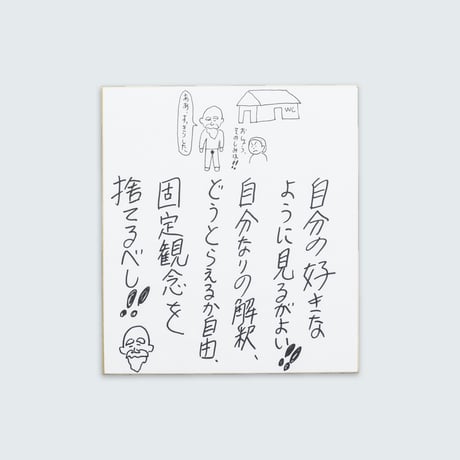 WC
おしょう、
そのしみは!!
ああ、すっきりした。
自分の好きな
ように見るがよい!!
自分なりの解釈、
どうとらえるか自由、
固定観念を
捨てるべし!!